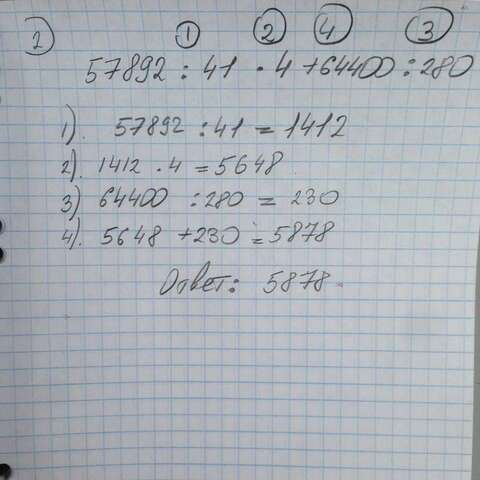 2) ① ② ④ ③
57892 : 41 · 4 + 64400 : 280
1). 57892 : 41 = 1412
2). 1412 · 4 = 5648
3) 64400 : 280 = 230
4). 5648 + 230 = 5878
Ответ: 5878